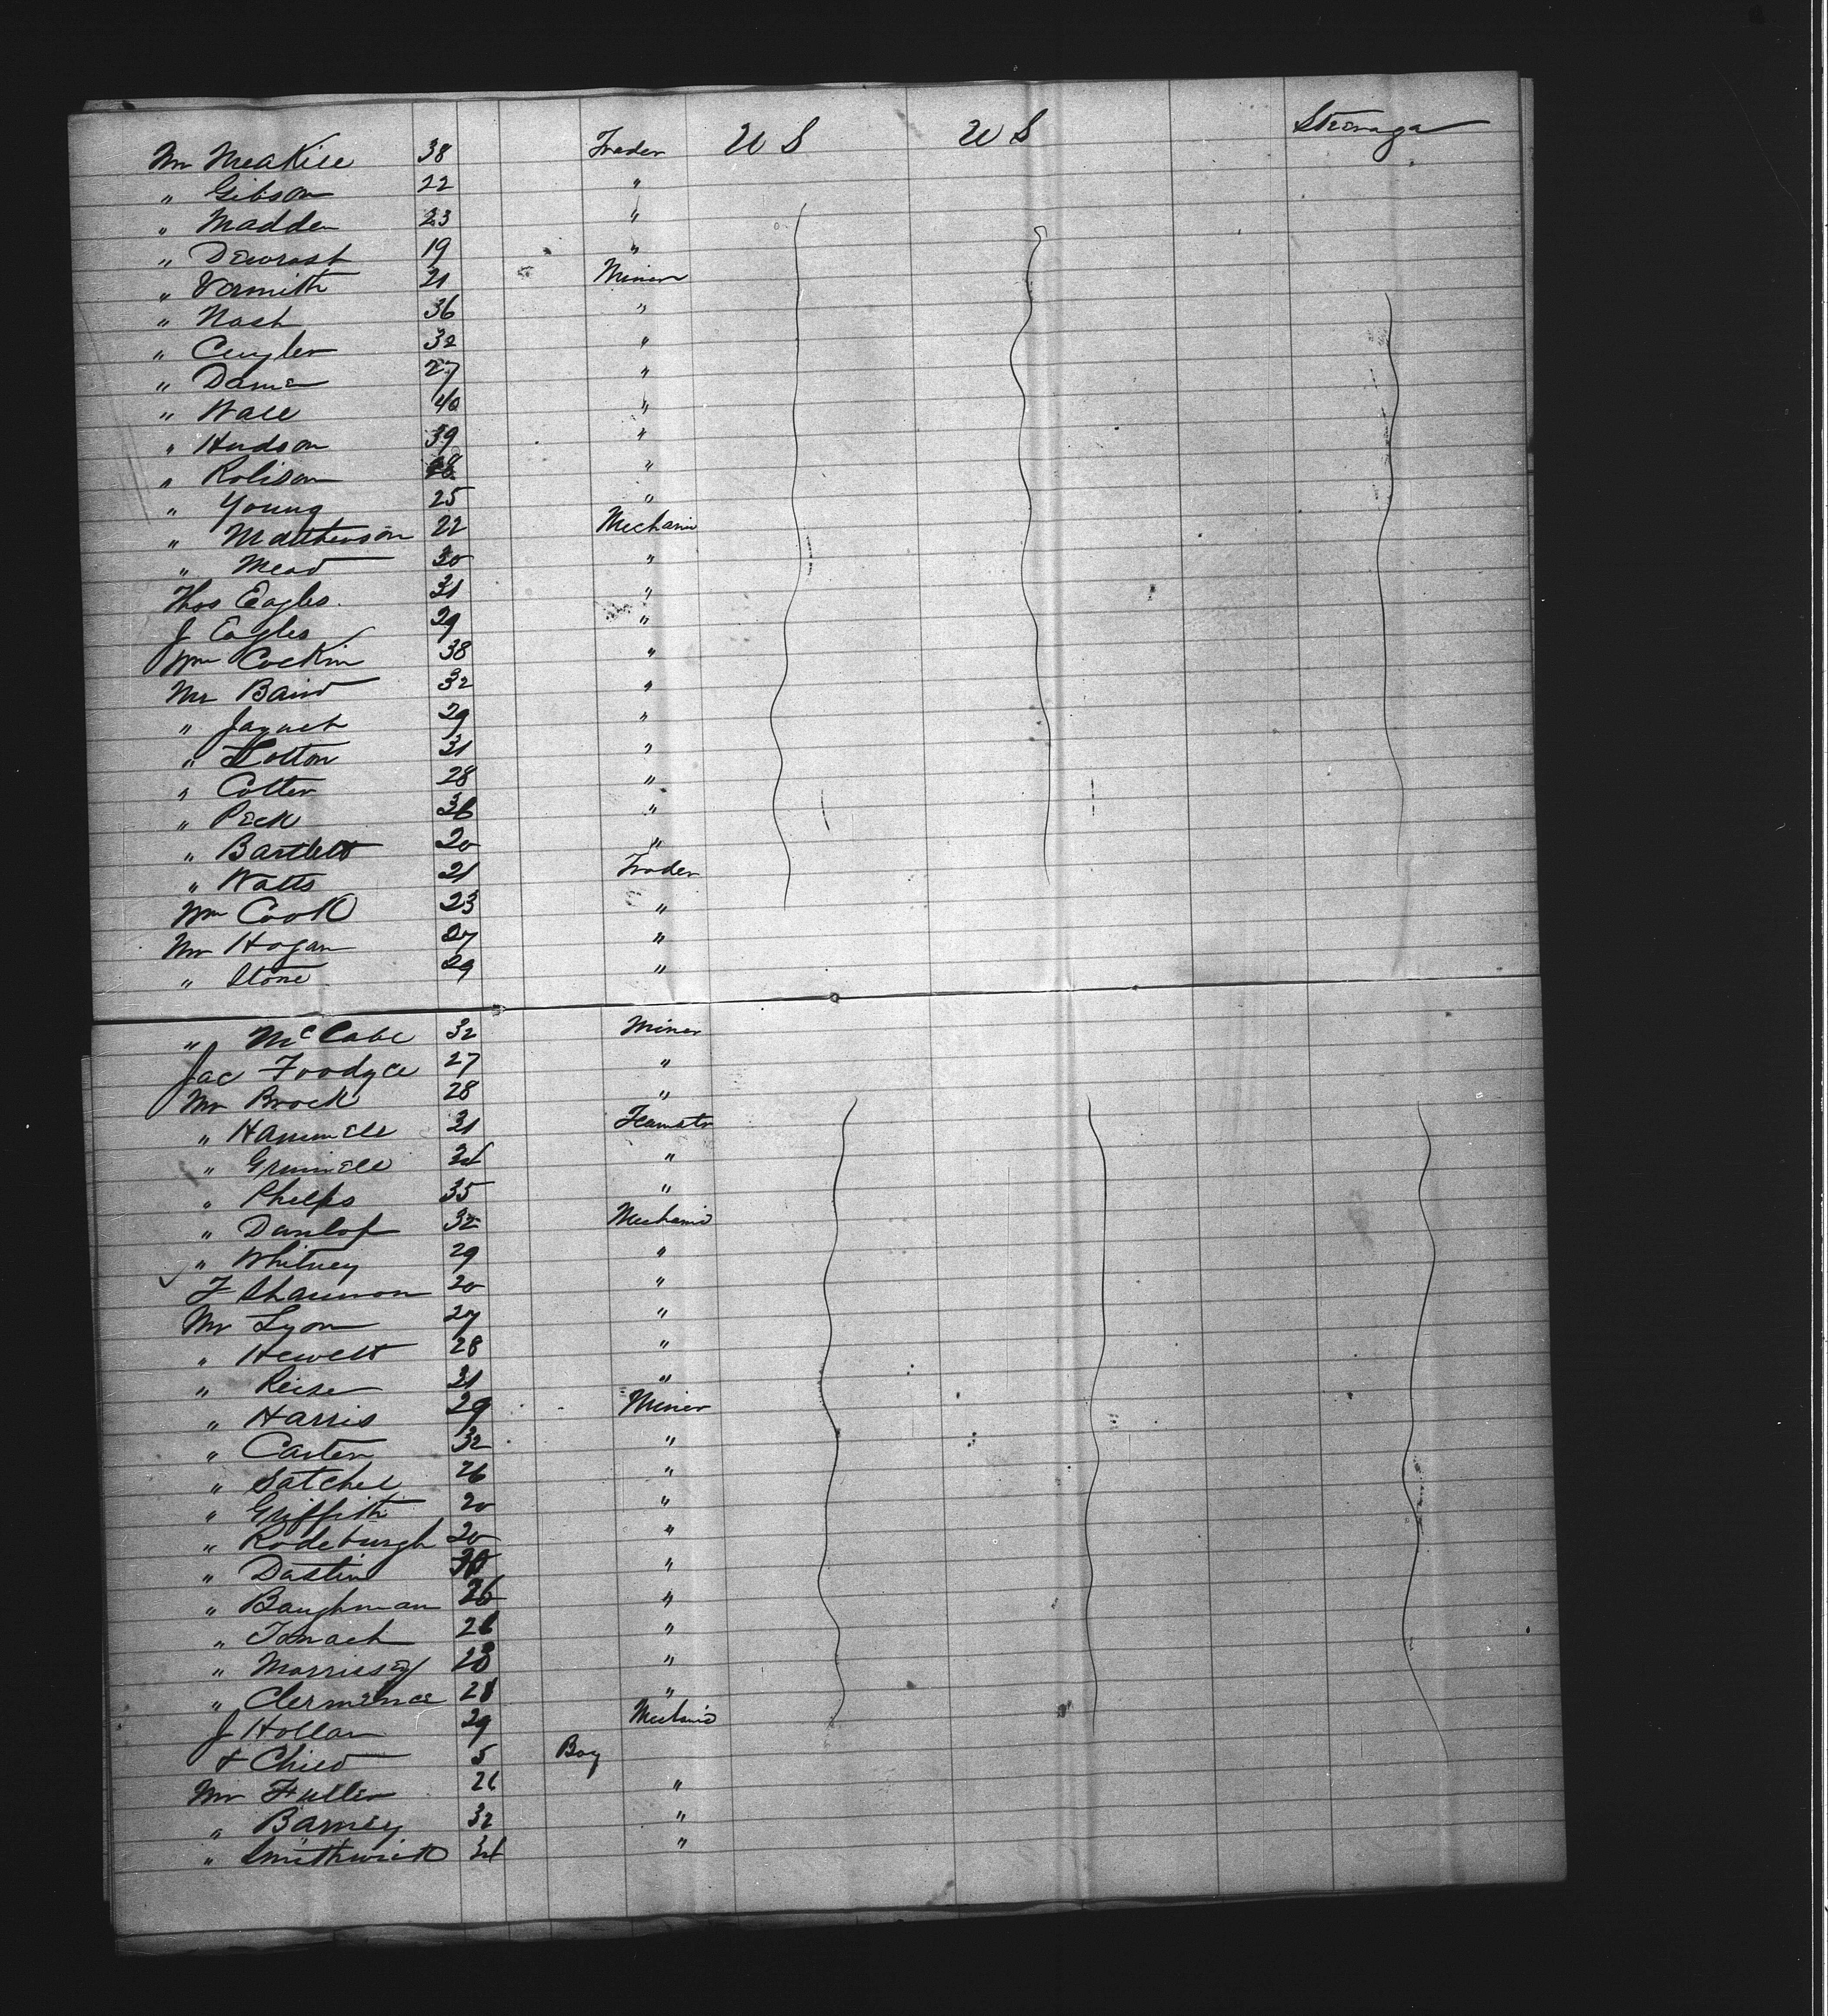 Mr Meakill 38 Trader U S U S Steerage
" Gibson 22 "
" Madden 23 "
" 19 "
" 21 Miner
" Nash 36 "
" Cuyler 32 "
" Dame 27 "
" Wall 40 "
" Hudson 39 "
" Rolison "
" Young 25 "
" Matthewson 22 Mechanic
" Mead 30 "
Thos Eagles 31 "
J Eagles 29 "
Wm Cockin 38 "
Mr Baird 32 "
" Jaquet 29 "
" 31 "
" Cotter 28 "
" Peck 36 "
" Bartlett 20 "
" Watts 21 Trader
Wm Cook 23 "
Mr Hogan 27 "
" Stone 29 "
" McCabe 32 Miner
Jac 27 "
Mr Brock 28 "
" Hammell 31 Teamstr
" Grinnell "
" Phelps 35 "
" Dunlop 32 Mechanic
" Whitney 29 "
F Shannon 20 "
Mr Lyon 27 "
" Hewett 28 "
" Reise 31 "
" Harris 29 Miner
" Carter 32 "
" Satchel 26 "
" Griffith 20 "
" Rodeburgh 20 "
" Dastin 30 "
" Baughman 26 "
" 26 "
" Morrissey 28 "
" Clermence 28 "
J Hollan 29 Mechanic
& Child 5 Boy
Mr Fuller 26 "
" Barney 32 "
" Smithwick "